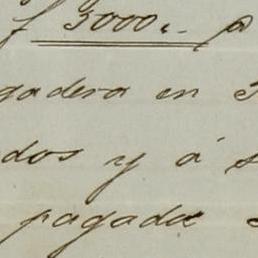 f 3000,,- p
gadera en 3
dos y á s
pagada